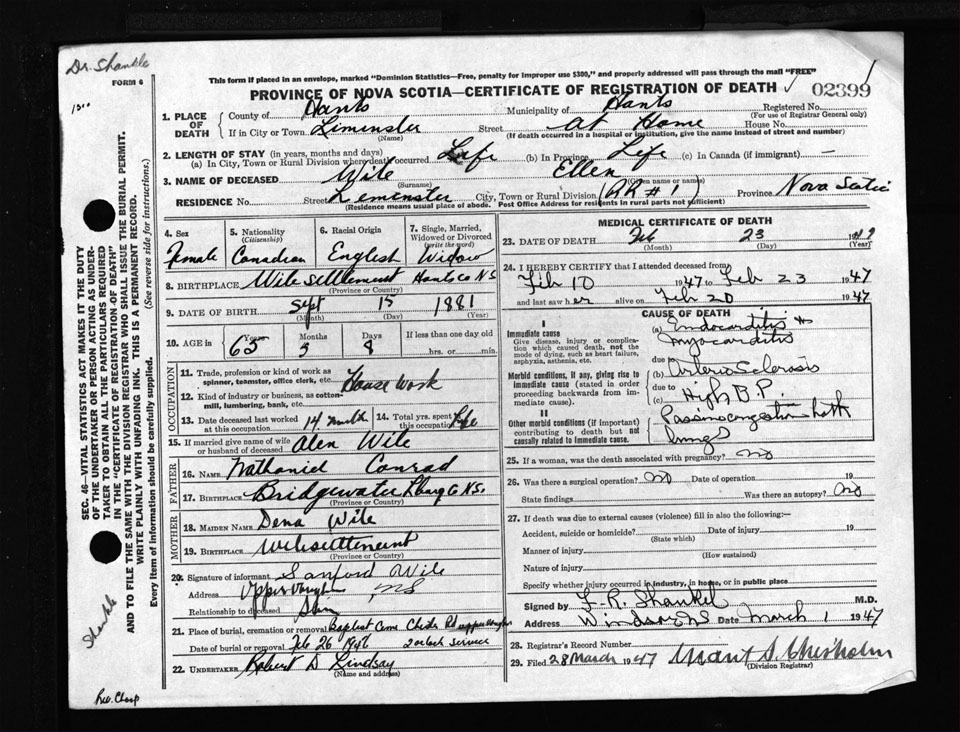 Dr. Shankle
FORM 6
This form if placed in an envelope, marked "Dominion Statistics—Free, penalty for improper use $300," and properly addressed will pass through the mail "FREE"
PROVINCE OF NOVA SCOTIA—CERTIFICATE OF REGISTRATION OF DEATH
02399
1. PLACE OF DEATH County of Hants Municipality of Hants Registered No. (For use of Registrar General only)
If in City or Town Liminster (Name) Street at Home House No. (If death occurred in a hospital or institution, give the name instead of street and number)
2. LENGTH OF STAY (in years, months and days)
(a) In City, Town or Rural Division where death occurred Life (b) In Province Life (c) In Canada (if immigrant) —
3. NAME OF DECEASED Wile (Surname) Ellen (Given name or names)
RESIDENCE No. Street Leminster City, Town or Rural Division (RR #1) Province Nova Scotia
(Residence means usual place of abode. Post Office Address for residents in rural parts not sufficient)
4. Sex Female
5. Nationality (Citizenship) Canadian
6. Racial Origin English
7. Single, Married, Widowed or Divorced (write the word) Widow
8. BIRTHPLACE Wile Settlement Hants Co NS (Province or Country)
9. DATE OF BIRTH Sept (Month) 15 (Day) 1881 (Year)
10. AGE in Years 65 Months 5 Days 8 If less than one day old hrs. or min.
OCCUPATION
11. Trade, profession or kind of work as spinner, teamster, office clerk, etc. House Work
12. Kind of industry or business, as cotton-mill, lumbering, bank, etc.
13. Date deceased last worked at this occupation 14 month
14. Total yrs. spent in this occupation Life
15. If married give name of wife or husband of deceased Alen Wile
FATHER
16. NAME Nathaniel Conrad
17. BIRTHPLACE Bridgewater Lburg Co NS. (Province or Country)
MOTHER
18. MAIDEN NAME Dena Wile
19. BIRTHPLACE Wile settlement (Province or Country)
20. Signature of informant Sanford Wile
Address Upper Vaughn NS
Relationship to deceased Son
21. Place of burial, cremation or removal Baptist Cem Chester Rd upper Vaughn
Date of burial or removal Feb 26 1947 2 oclock service
22. UNDERTAKER Robert D Lindsay (Name and address)
MEDICAL CERTIFICATE OF DEATH
23. DATE OF DEATH Feb (Month) 23 (Day) 1947 (Year)
24. I HEREBY CERTIFY that I attended deceased from
Feb 10 1947 to Feb 23 1947
and last saw her alive on Feb 20 1947
CAUSE OF DEATH
I
Immediate cause
Give disease, injury or complication which caused death, not the mode of dying, such as heart failure, asphyxia, asthenia, etc.
(a) Endocarditis & Myocarditis
due to
Morbid conditions, if any, giving rise to immediate cause (stated in order proceeding backwards from immediate cause).
(b) Arterio Sclerosis
due to
(c) High B.P.
II
Other morbid conditions (if important) contributing to death but not causally related to immediate cause.
Passive congestion both lungs
25. If a woman, was the death associated with pregnancy? No
26. Was there a surgical operation? No Date of operation 19
State findings Was there an autopsy? No
27. If death was due to external causes (violence) fill in also the following:—
Accident, suicide or homicide? (State which) Date of injury 19
Manner of injury (How sustained)
Nature of injury
Specify whether injury occurred in industry, in home, or in public place
Signed by F. R. Shankel M.D.
Address Windsor NS Date March 1 1947
28. Registrar's Record Number
29. Filed 28 March 1947 Grant S. Chisholm (Division Registrar)
SEC. 46—VITAL STATISTICS ACT MAKES IT THE DUTY
OF THE UNDERTAKER OR PERSON ACTING AS UNDERTAKER TO OBTAIN ALL THE PARTICULARS REQUIRED
IN THE "CERTIFICATE OF REGISTRATION OF DEATH"
AND TO FILE THE SAME WITH THE DIVISION REGISTRAR WHO SHALL ISSUE THE BURIAL PERMIT.
WRITE PLAINLY WITH UNFADING INK. THIS IS A PERMANENT RECORD.
Every item of information should be carefully supplied. (See reverse side for instructions.)
Shankle
Rev. Chasp